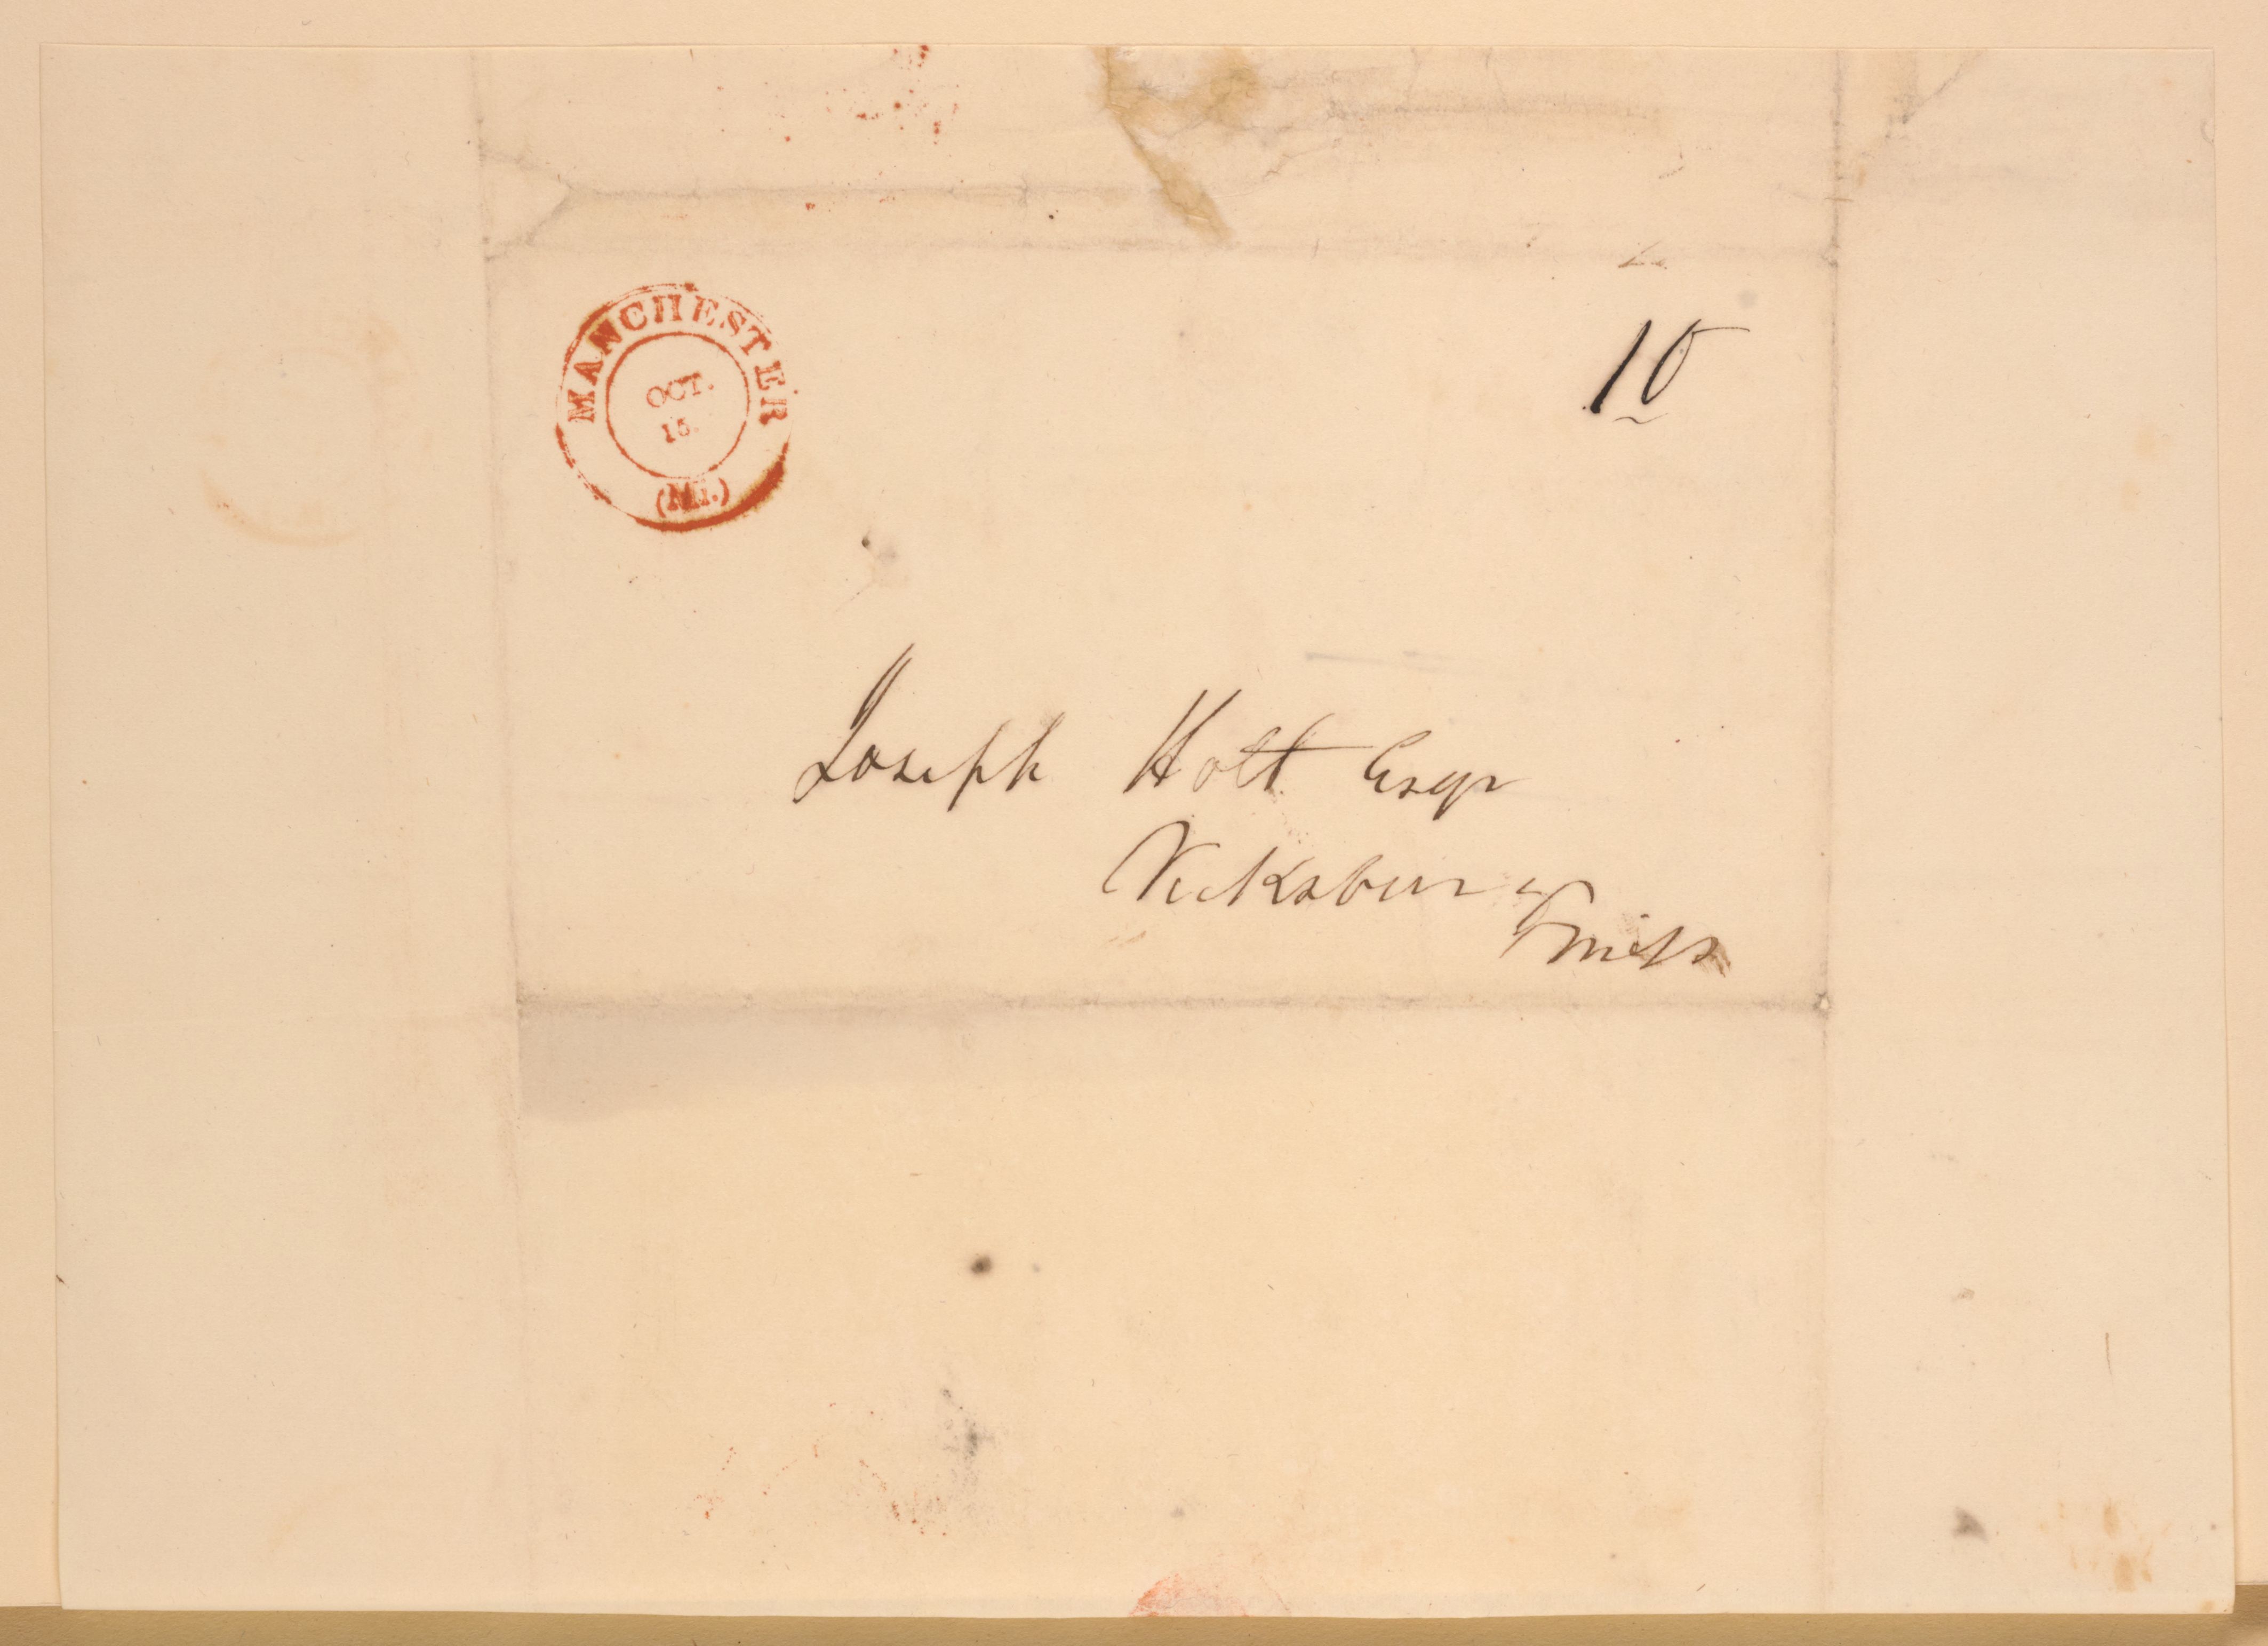 MANCHESTER
OCT.
15.
(Mi.)
10
Joseph Holt Esqr
Vicksburg
Miss